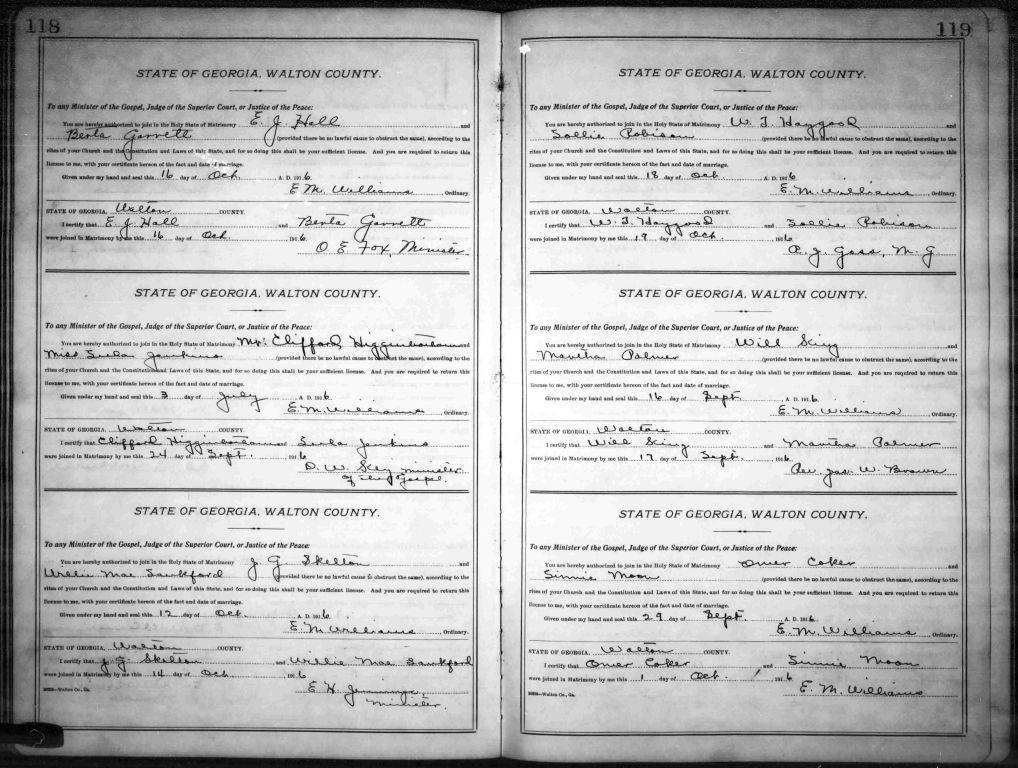 118
STATE OF GEORGIA, WALTON COUNTY.
To any Minister of the Gospel, Judge of the Superior Court, or Justice of the Peace:
You are hereby authorized to join in the Holy State of Matrimony E. J. Hall and
Berta Garrett (provided there be no lawful cause to obstruct the same), according to the
rites of your Church and the Constitution and Laws of this State, and for so doing this shall be your sufficient license. And you are required to return this
license to me, with your certificate hereon of the fact and date of marriage.
Given under my hand and seal this 16 day of Oct. A. D. 1916.
E M. Williams, Ordinary.
STATE OF GEORGIA, Walton COUNTY.
I certify that E. J. Hall and Berta Garrett
were joined in Matrimony by me this 16 day of Oct. 1916
O E Fox, Minister
STATE OF GEORGIA, WALTON COUNTY.
To any Minister of the Gospel, Judge of the Superior Court, or Justice of the Peace:
You are hereby authorized to join in the Holy State of Matrimony Mr. Clifford Higginbotham and
Miss Jenkins (provided there be no lawful cause to obstruct the same), according to the
rites of your Church and the Constitution and Laws of this State, and for so doing this shall be your sufficient license. And you are required to return this
license to me, with your certificate hereon of the fact and date of marriage.
Given under my hand and seal this 3 day of July A. D. 1916
E. M. Williams, Ordinary.
STATE OF GEORGIA, Walton COUNTY.
I certify that Clifford Higginbotham and Jenkins
were joined in Matrimony by me this 24 day of Sept. 1916
D. W. minister
of the Gospel.
STATE OF GEORGIA, WALTON COUNTY.
To any Minister of the Gospel, Judge of the Superior Court, or Justice of the Peace:
You are hereby authorized to join in the Holy State of Matrimony J G Skelton and
Willie Mae Sankford (provided there be no lawful cause to obstruct the same), according to the
rites of your Church and the Constitution and Laws of this State, and for so doing this shall be your sufficient license. And you are required to return this
license to me, with your certificate hereon of the fact and date of marriage.
Given under my hand and seal this 12 day of Oct. A. D. 1916
E. M Williams Ordinary.
STATE OF GEORGIA, Walton COUNTY.
I certify that J. G. Skelton and Willie Mae Sankford
were joined in Matrimony by me this 14 day of Oct 1916
E H. Jennings,
Minister.
119
STATE OF GEORGIA, WALTON COUNTY.
To any Minister of the Gospel, Judge of the Superior Court, or Justice of the Peace:
You are hereby authorized to join in the Holy State of Matrimony W. T. Haygood and
Sallie Robison (provided there be no lawful cause to obstruct the same), according to the
rites of your Church and the Constitution and Laws of this State, and for so doing this shall be your sufficient license. And you are required to return this
license to me, with your certificate hereon of the fact and date of marriage.
Given under my hand and seal this 18 day of Oct. A. D. 1916
E. M. Williams, Ordinary.
STATE OF GEORGIA, Walton COUNTY.
I certify that W. T. Haygood and Sallie Robison
were joined in Matrimony by me this 19 day of Oct. 1916
J. Gass, M. G
STATE OF GEORGIA, WALTON COUNTY.
To any Minister of the Gospel, Judge of the Superior Court, or Justice of the Peace:
You are hereby authorized to join in the Holy State of Matrimony Will King and
Martha Palmer (provided there be no lawful cause to obstruct the same), according to the
rites of your Church and the Constitution and Laws of this State, and for so doing this shall be your sufficient license. And you are required to return this
license to me, with your certificate hereon of the fact and date of marriage.
Given under my hand and seal this 16 day of Sept A. D. 1916
E. M. Williams, Ordinary.
STATE OF GEORGIA, Walton COUNTY.
I certify that Will King and Martha Palmer
were joined in Matrimony by me this 17 day of Sept. 1916
Rev. Jas. W. Brown
STATE OF GEORGIA, WALTON COUNTY.
To any Minister of the Gospel, Judge of the Superior Court, or Justice of the Peace:
You are hereby authorized to join in the Holy State of Matrimony Omer Coker and
Sinnie Moon (provided there be no lawful cause to obstruct the same), according to the
rites of your Church and the Constitution and Laws of this State, and for so doing this shall be your sufficient license. And you are required to return this
license to me, with your certificate hereon of the fact and date of marriage.
Given under my hand and seal this 29 day of Sept. A. D. 1916
E. M. Williams Ordinary.
STATE OF GEORGIA, Walton COUNTY.
I certify that Omer Coker and Sinnie Moon
were joined in Matrimony by me this 1 day of Oct. 1916
E. M. Williams